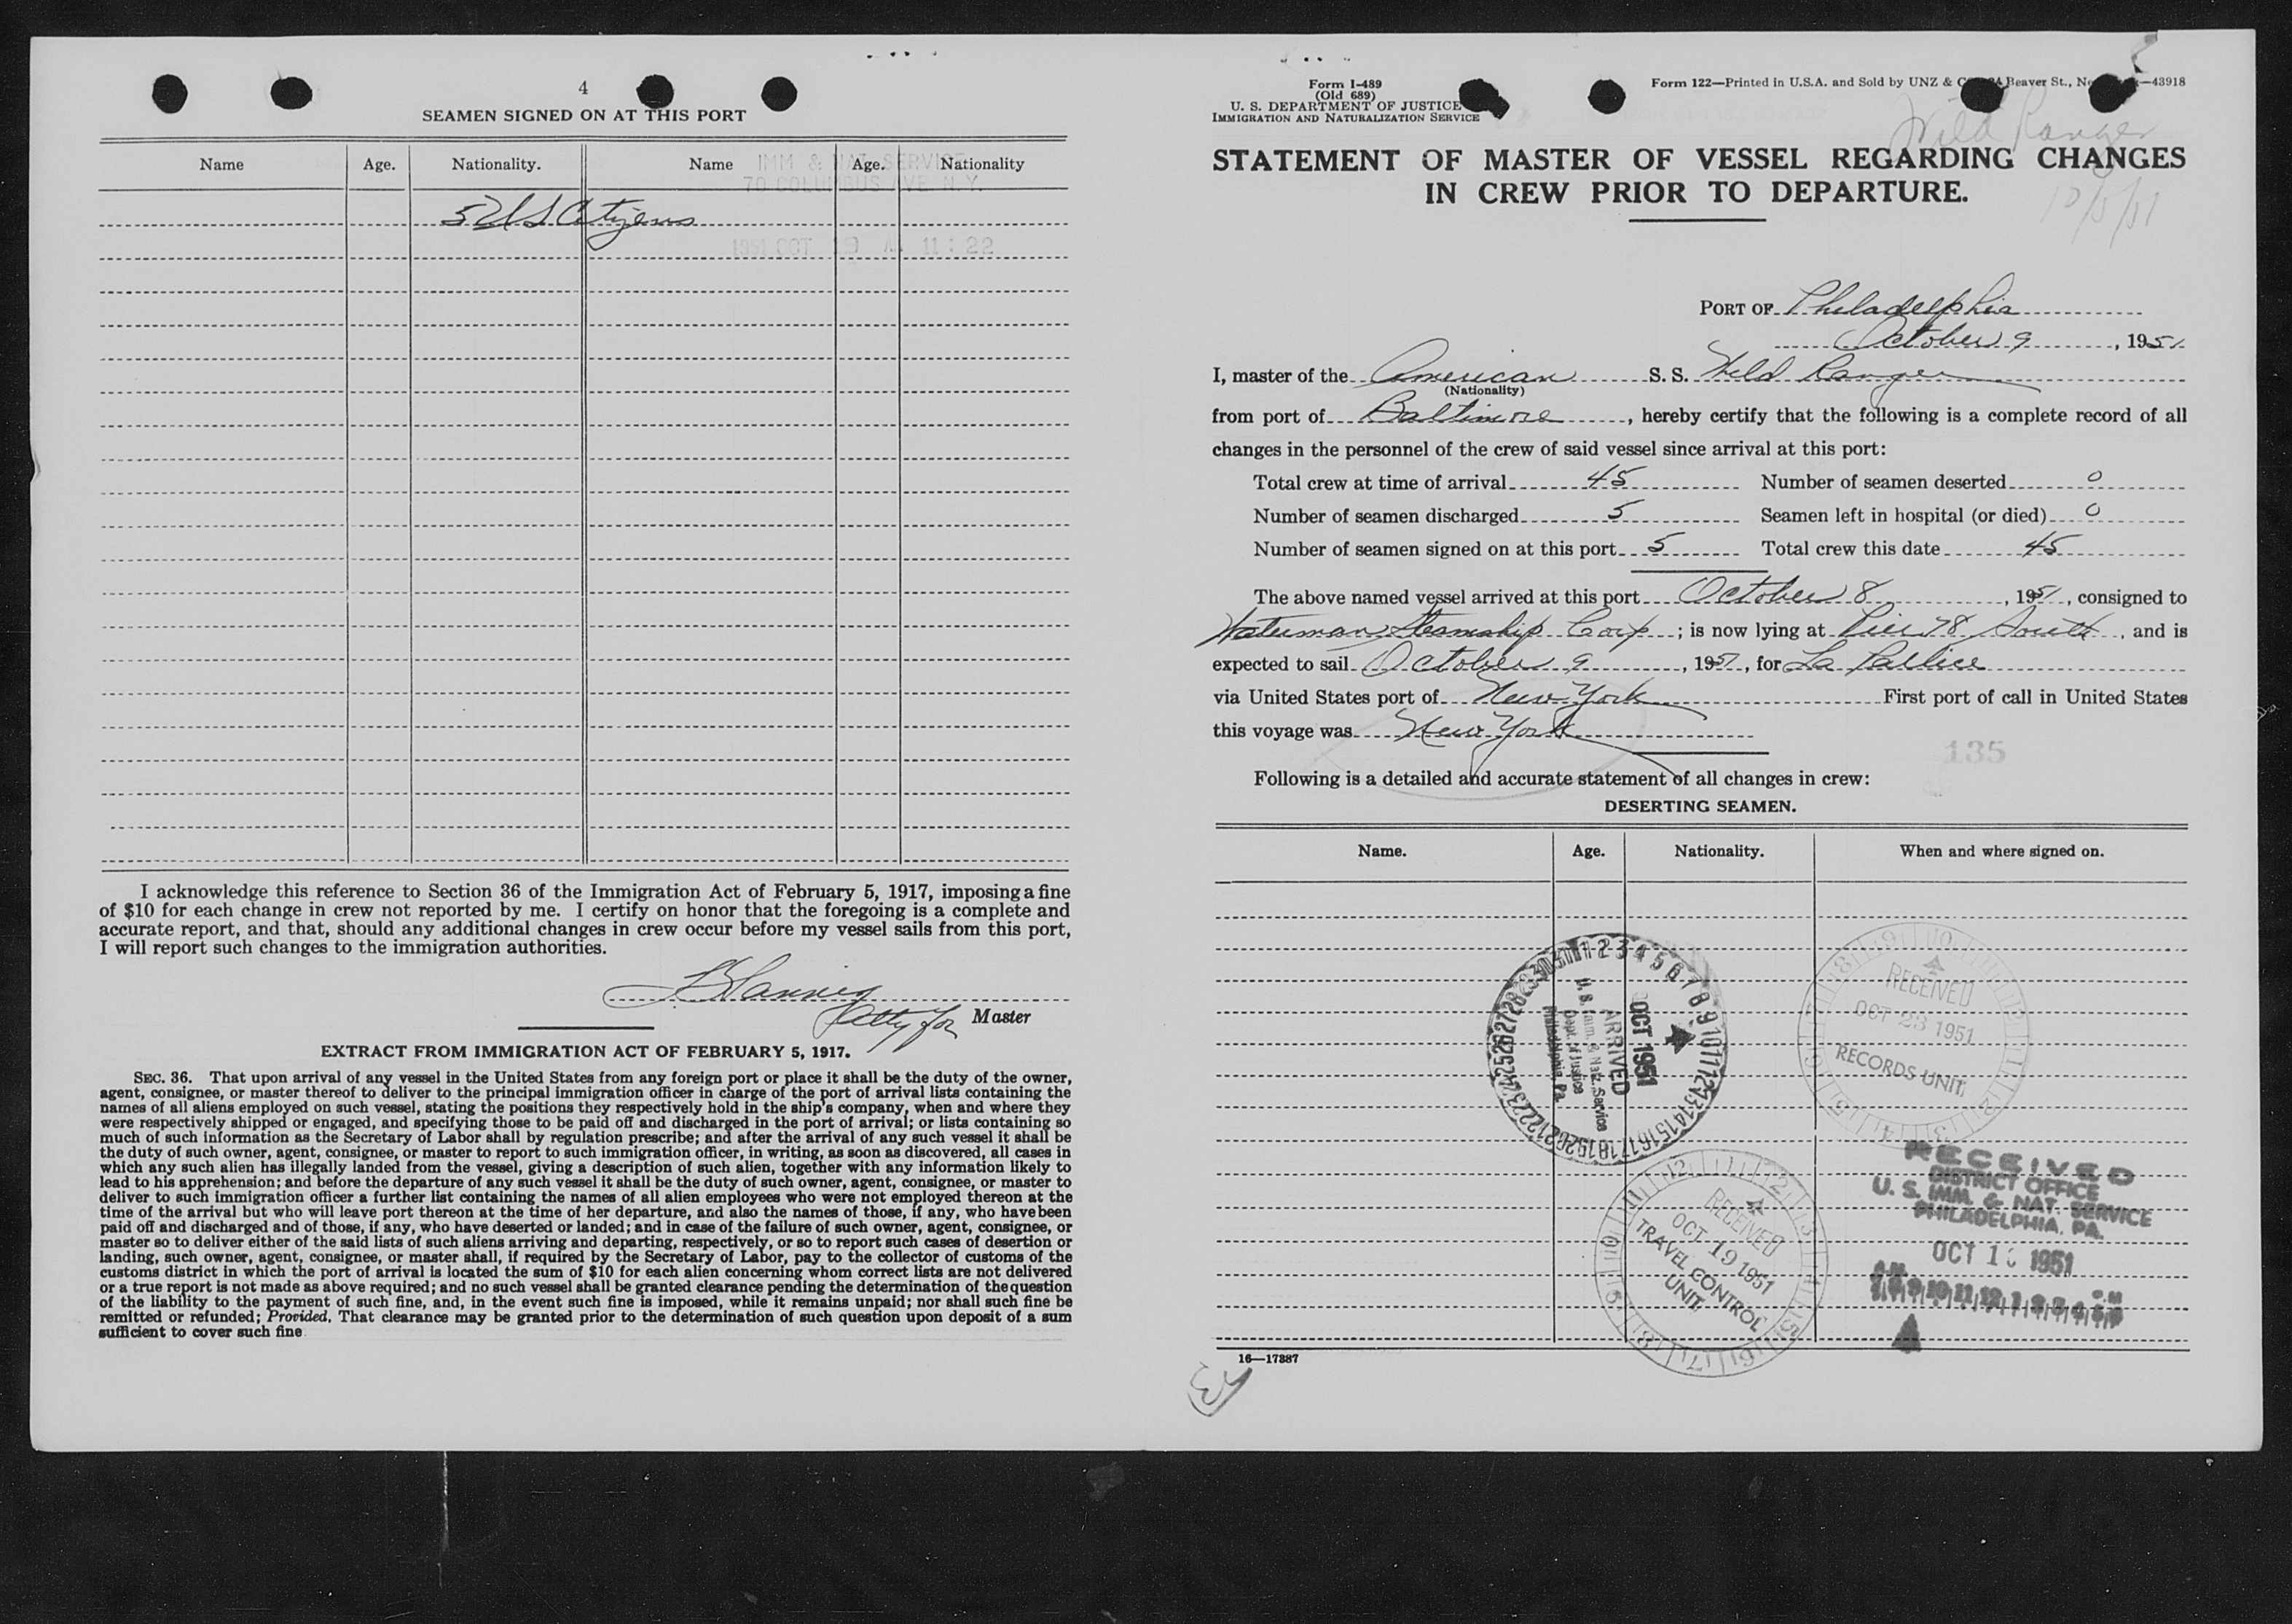 4
SEAMEN SIGNED ON AT THIS PORT
Name Age. Nationality. Name Age. Nationality
IMM & NAT. SERVICE
70 COLUMBUS AVE N.Y.
5 US Citizens
1951 OCT 19 AM 11:22
I acknowledge this reference to Section 36 of the Immigration Act of February 5, 1917, imposing a fine
of $10 for each change in crew not reported by me. I certify on honor that the foregoing is a complete and
accurate report, and that, should any additional changes in crew occur before my vessel sails from this port,
I will report such changes to the immigration authorities.
Master
EXTRACT FROM IMMIGRATION ACT OF FEBRUARY 5, 1917.
SEC. 36. That upon arrival of any vessel in the United States from any foreign port or place it shall be the duty of the owner,
agent, consignee, or master thereof to deliver to the principal immigration officer in charge of the port of arrival lists containing the
names of all aliens employed on such vessel, stating the positions they respectively hold in the ship's company, when and where they
were respectively shipped or engaged, and specifying those to be paid off and discharged in the port of arrival; or lists containing so
much of such information as the Secretary of Labor shall by regulation prescribe; and after the arrival of any such vessel it shall be
the duty of such owner, agent, consignee, or master to report to such immigration officer, in writing, as soon as discovered, all cases in
which any such alien has illegally landed from the vessel, giving a description of such alien, together with any information likely to
lead to his apprehension; and before the departure of any such vessel it shall be the duty of such owner, agent, consignee, or master to
deliver to such immigration officer a further list containing the names of all alien employees who were not employed thereon at the
time of the arrival but who will leave port thereon at the time of her departure, and also the names of those, if any, who have been
paid off and discharged and of those, if any, who have deserted or landed; and in case of the failure of such owner, agent, consignee, or
master so to deliver either of the said lists of such aliens arriving and departing, respectively, or so to report such cases of desertion or
landing, such owner, agent, consignee, or master shall, if required by the Secretary of Labor, pay to the collector of customs of the
customs district in which the port of arrival is located the sum of $10 for each alien concerning whom correct lists are not delivered
or a true report is not made as above required; and no such vessel shall be granted clearance pending the determination of the question
of the liability to the payment of such fine, and, in the event such fine is imposed, while it remains unpaid; nor shall such fine be
remitted or refunded; Provided, That clearance may be granted prior to the determination of such question upon deposit of a sum
sufficient to cover such fine
Form I-489
(Old 689)
U. S. DEPARTMENT OF JUSTICE
IMMIGRATION AND NATURALIZATION SERVICE
Form 122—Printed in U.S.A. and Sold by UNZ & Beaver St., —43918
Wild Ranger
STATEMENT OF MASTER OF VESSEL REGARDING CHANGES
IN CREW PRIOR TO DEPARTURE.
PORT OF Philadelphia
October 9, 1951
I, master of the American S. S. Wild Ranger
(Nationality)
from port of Baltimore, hereby certify that the following is a complete record of all
changes in the personnel of the crew of said vessel since arrival at this port:
Total crew at time of arrival 45 Number of seamen deserted 0
Number of seamen discharged 5 Seamen left in hospital (or died) 0
Number of seamen signed on at this port 5 Total crew this date 45
The above named vessel arrived at this port October 8, 1951, consigned to
Waterman Steamship Corp; is now lying at Pier 78 South, and is
expected to sail October 9, 1951, for La Pallice
via United States port of New York First port of call in United States
this voyage was New York
135
Following is a detailed and accurate statement of all changes in crew:
DESERTING SEAMEN.
Name. Age. Nationality. When and where signed on.
OCT 1951
ARRIVED
U. S. Imm. & Natz. Service
Dept. of Justice
Philadelphia, Pa.
RECEIVED
OCT 23 1951
RECORDS UNIT
RECEIVED
OCT 19 1951
TRAVEL CONTROL
UNIT
RECEIVED
DISTRICT OFFICE
U. S. IMM. & NAT. SERVICE
PHILADELPHIA, PA.
OCT 1951
16—17387